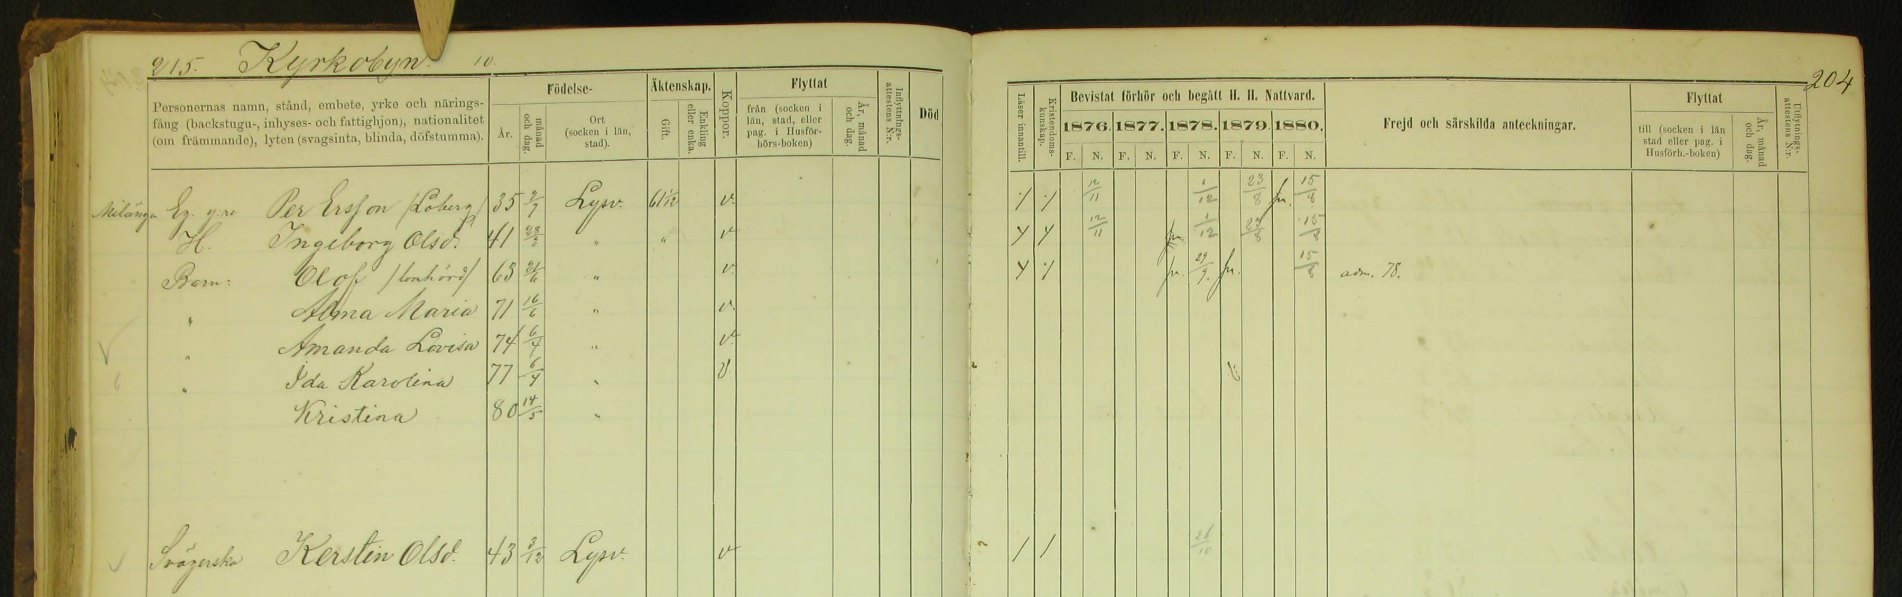 215. Kyrkobyn. 10
204
Personernas namn, stånd, embete, yrke och närings-
fång (backstugu-, inhyses- och fattighjon), nationalitet
(om främmande), lyten (svagsinta, blinda, döfstumma).
Födelse-
År.
månad och dag.
Ort
(socken i län,
stad).
Äktenskap.
Gift.
Enkling eller enka.
Koppor.
Flyttat
från (socken i
län, stad, eller
pag. i Husför-
hörs-boken)
År, månad och dag.
Inflyttnings-attestens N:r.
Död
Läser innantill.
Kristendoms-kunskap.
Bevistat förhör och begått H. H. Nattvard.
1876. 1877. 1878. 1879. 1880.
F. N. F. N. F. N. F. N. F. N.
Frejd och särskilda anteckningar.
Flyttat
till (socken i län
stad eller pag. i
Husförh.-boken)
År, månad och dag.
Utflyttnings-attestens N:r.
Per Ersson /Loberg/ 35 2/7 Lysv. 61 v. 12/11 1/12 23/8 15/8
H. Ingeborg Olsd. 41 " " v 12/11 1/12 23/8 15/8
Barn: Olof 63 " v. 29/9 15/8 adm. 78.
" Alma Maria 71 16/6 " v.
" Amanda Lovisa 74 " v
" Ida Karolina 77 " v.
Kristina 80 14/5 "
Svägerska Kerstin Olsd. 43 3/12 Lysv. v 26/10